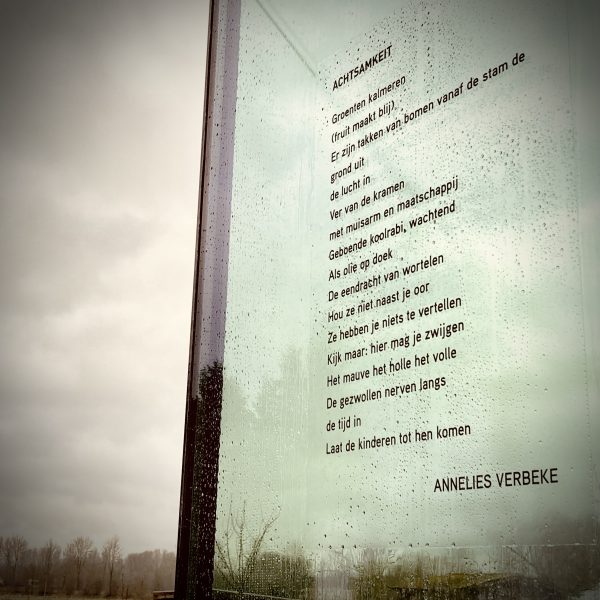 ACHTSAMKEIT
Groenten kalmeren
(fruit maakt blij)
Er zijn takken van bomen vanaf de stam de
grond uit
de lucht in
Ver van de kramen
met muisarm en maatschappij
Geboende koolrabi, wachtend
Als olie op doek
De eendracht van wortelen
Hou ze niet naast je oor
Ze hebben je niets te vertellen
Kijk maar: hier mag je zwijgen
Het mauve het holle het volle
De gezwollen nerven langs
de tijd in
Laat de kinderen tot hen komen
ANNELIES VERBEKE